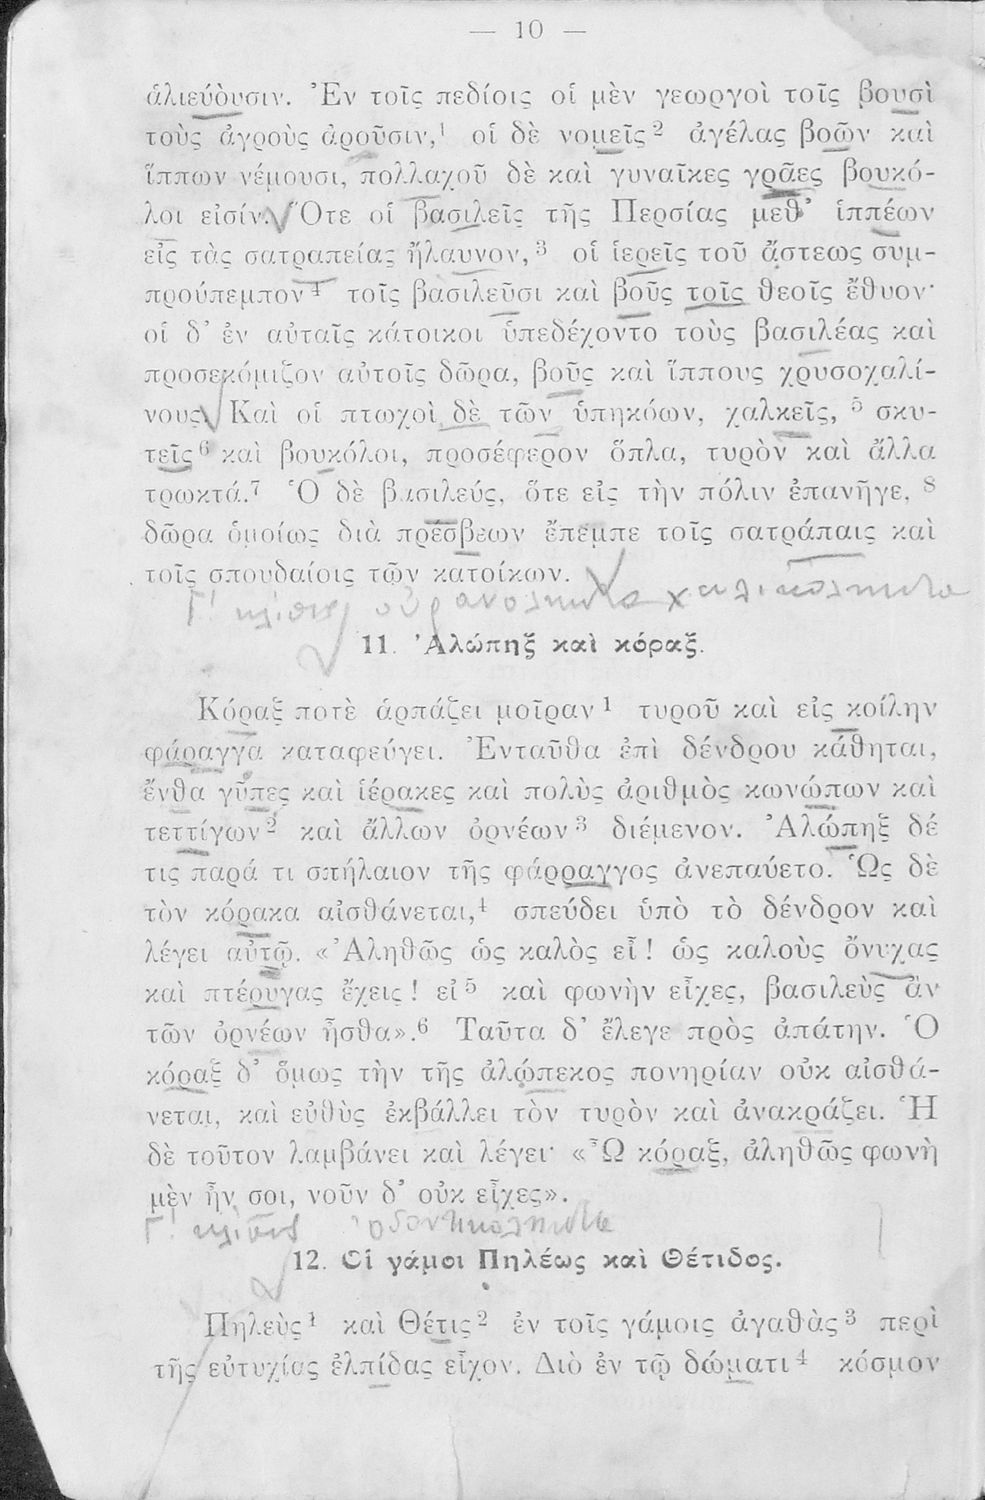 — 10 —
ἁλιεύουσιν. Ἐν τοῖς πεδίοις οἱ μὲν γεωργοὶ τοῖς βουσὶ
τοὺς ἀγροὺς ἀροῦσιν,¹ οἱ δὲ νομεῖς² ἀγέλας βοῶν καὶ
ἵππων νέμουσι, πολλαχοῦ δὲ καὶ γυναῖκες γρᾶες βουκό-
λοι εἰσίν. Ὅτε οἱ βασιλεῖς τῆς Περσίας μεθ' ἱππέων
εἰς τὰς σατραπείας ἤλαυνον,³ οἱ ἱερεῖς τοῦ ἄστεως συμ-
προύπεμπον⁴ τοῖς βασιλεῦσι καὶ βοῦς τοῖς θεοῖς ἔθυον·
οἱ δ' ἐν αὐταῖς κάτοικοι ὑπεδέχοντο τοὺς βασιλέας καὶ
προσεκόμιζον αὐτοῖς δῶρα, βοῦς καὶ ἵππους χρυσοχαλί-
νους. Καὶ οἱ πτωχοὶ δὲ τῶν ὑπηκόων, χαλκεῖς, ⁵ σκυ-
τεῖς⁶ καὶ βουκόλοι, προσέφερον ὅπλα, τυρὸν καὶ ἄλλα
τρωκτά.⁷ Ὁ δὲ βασιλεύς, ὅτε εἰς τὴν πόλιν ἐπανῆγε, ⁸
δῶρα ὁμοίως διὰ πρέσβεων ἔπεμπε τοῖς σατράπαις καὶ
τοῖς σπουδαίοις τῶν κατοίκων.
Γ' κλίσις οὐρανολικτα χ
11. Ἀλώπηξ καὶ κόραξ.
Κόραξ ποτὲ ἁρπάζει μοῖραν¹ τυροῦ καὶ εἰς κοίλην
φάραγγα καταφεύγει. Ἐνταῦθα ἐπὶ δένδρου κάθηται,
ἔνθα γῦπες καὶ ἱέρακες καὶ πολὺς ἀριθμὸς κωνώπων καὶ
τεττίγων² καὶ ἄλλων ὀρνέων³ διέμενον. Ἀλώπηξ δέ
τις παρά τι σπήλαιον τῆς φάρραγγος ἀνεπαύετο. Ὡς δὲ
τὸν κόρακα αἰσθάνεται,⁴ σπεύδει ὑπὸ τὸ δένδρον καὶ
λέγει αὐτῷ. «Ἀληθῶς ὡς καλὸς εἶ! ὡς καλοὺς ὄνυχας
καὶ πτέρυγας ἔχεις! εἰ⁵ καὶ φωνὴν εἶχες, βασιλεὺς ἂν
τῶν ὀρνέων ἦσθα».⁶ Ταῦτα δ' ἔλεγε πρὸς ἀπάτην. Ὁ
κόραξ δ' ὅμως τὴν τῆς ἀλώπεκος πονηρίαν οὐκ αἰσθά-
νεται, καὶ εὐθὺς ἐκβάλλει τὸν τυρὸν καὶ ἀνακράζει. Ἡ
δὲ τοῦτον λαμβάνει καὶ λέγει· «Ὦ κόραξ, ἀληθῶς φωνὴ
μὲν ἦν σοι, νοῦν δ' οὐκ εἶχες».
Γ' κλίσις ὀδοντικόληκτα
12. Οἱ γάμοι Πηλέως καὶ Θέτιδος.
Πηλεὺς¹ καὶ Θέτις² ἐν τοῖς γάμοις ἀγαθὰς³ περὶ
τῆς εὐτυχίας ἐλπίδας εἶχον. Διὸ ἐν τῷ δώματι⁴ κόσμον